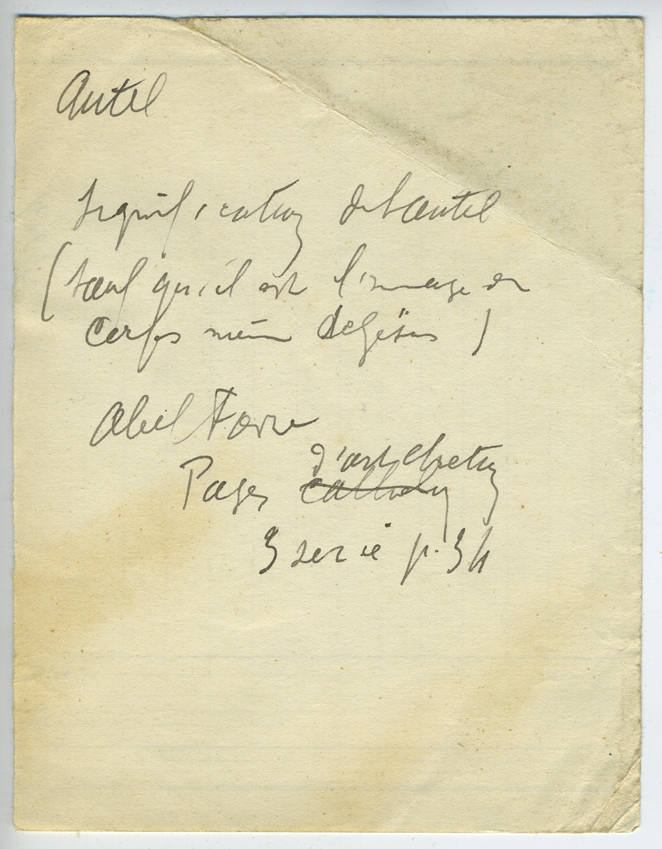 Autel
Signification de l'autel
(tant qu'il est l'image du
Corps même de Jésus)
Abel Fabre
d'art chrétien
Pages catholiq
3 serie p. 34